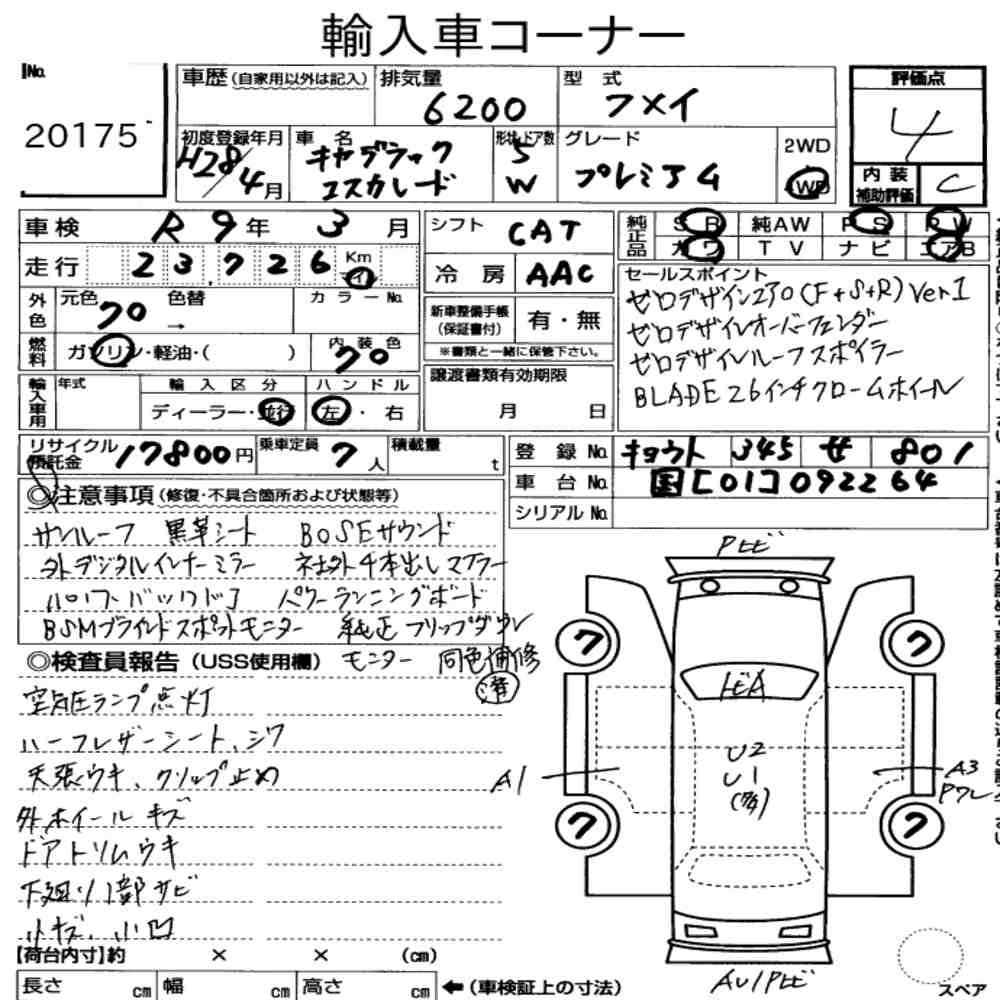 輸入車コーナー
No. 20175
車歴(自家用以外は記入)
排気量 6200
型式 フメイ
評価点 4
初度登録年月 H28/4月
車名 キャデラック エスカレード
形状・ドア数 5 W
グレード プレミアム
2WD 4WD
内装補助評価 C
車検 R 9年 3月
走行 23,726 Km マイル
シフト CAT
冷房 AAC
純正品 SR 純AW PS PW
カワ TV ナビ エアB
外色 元色 クロ 色替 → カラーNo.
燃料 ガソリン・軽油・( ) 内装色 クロ
新車整備手帳(保証書付) 有・無
※書類と一緒に保管下さい。
セールスポイント
ゼロデザイン230(F+S+R)Ver1
ゼロデザインオーバーフェンダー
ゼロデザインルーフスポイラー
BLADE26インチクロームホイール
輸入車用 年式 輸入区分 ディーラー・並行 ハンドル 左・右
譲渡書類有効期限 月 日
リサイクル預託金 17800円 乗車定員 7人 積載量 t
登録No. キョウト 345 せ 801
車台No. 国[01]092264
シリアルNo.
◎注意事項(修復・不具合箇所および状態等)
サンルーフ 黒革シート BOSEサウンド
外デジタルインナーミラー 社外4本出しマフラー
パワーバックドア パワーランニングボード
BSMブラインドスポットモニター 純正フリップダウン
モニター 同色補修済
◎検査員報告(USS使用欄)
空気圧ランプ点灯
ハーフレザーシート、シワ
天張ウキ、クリップ止め
外ホイールキズ
ドアトリムウキ
下廻り1部サビ
小キズ、小凹
Pヒビ
トビA
U2
U1
A1
A3
Pワレ
ク
ク
ク
ク
AU1Pヒビ
スペア
【荷台内寸】約 × × (cm)
長さ cm 幅 cm 高さ cm ←(車検証上の寸法)